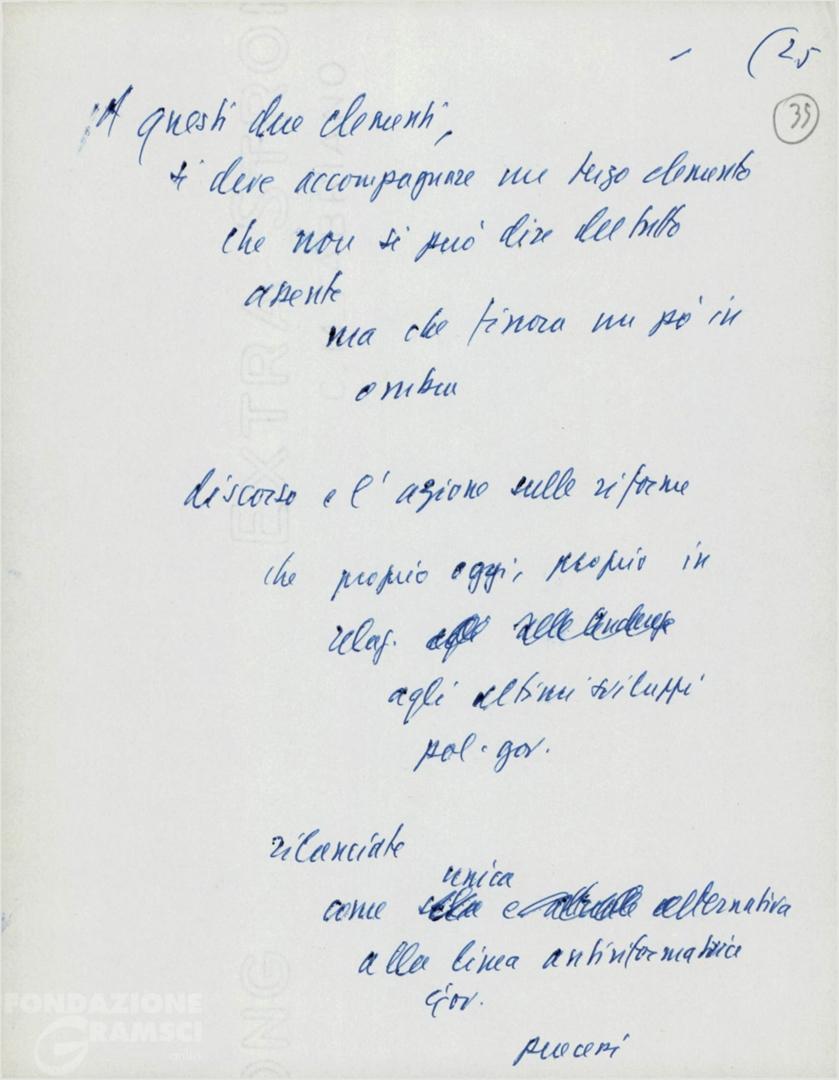 - (25
35
A questi due elementi,
si deve accompagnare un terzo elemento
che non si può dire del tutto
assente
ma che finora un pò in
ombra
discorso e l'azione sulle riforme
che proprio oggi, proprio in
relaz.
agli ultimi sviluppi
pol-gov.
rilanciate
unica
come alternativa
alla linea antiriformatrice
gov.
EXTRA STRONG
FONDAZIONE
GRAMSCI